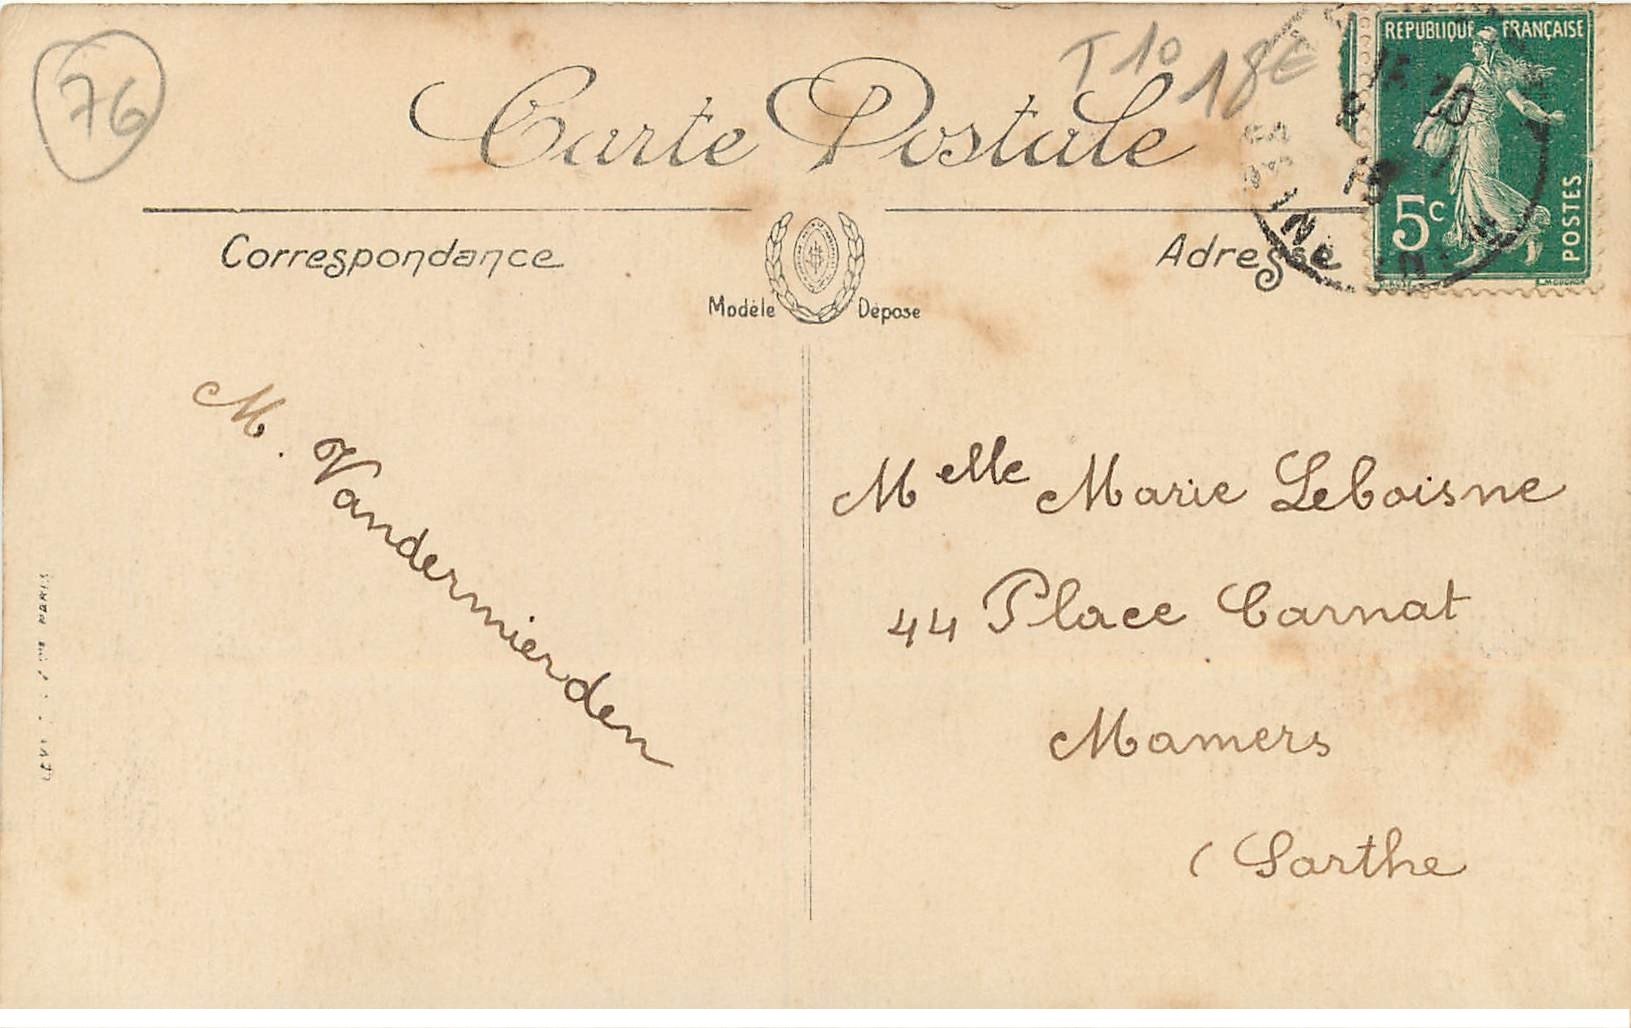 76
T10
18€
Carte Postale
REPUBLIQUE FRANÇAISE
5c
POSTES
Correspondance
Adresse
Modèle Déposé
M. Vandermierden
Melle Marie Leboisne
44 Place Carnat
Mamers
(Sarthe
PARIS